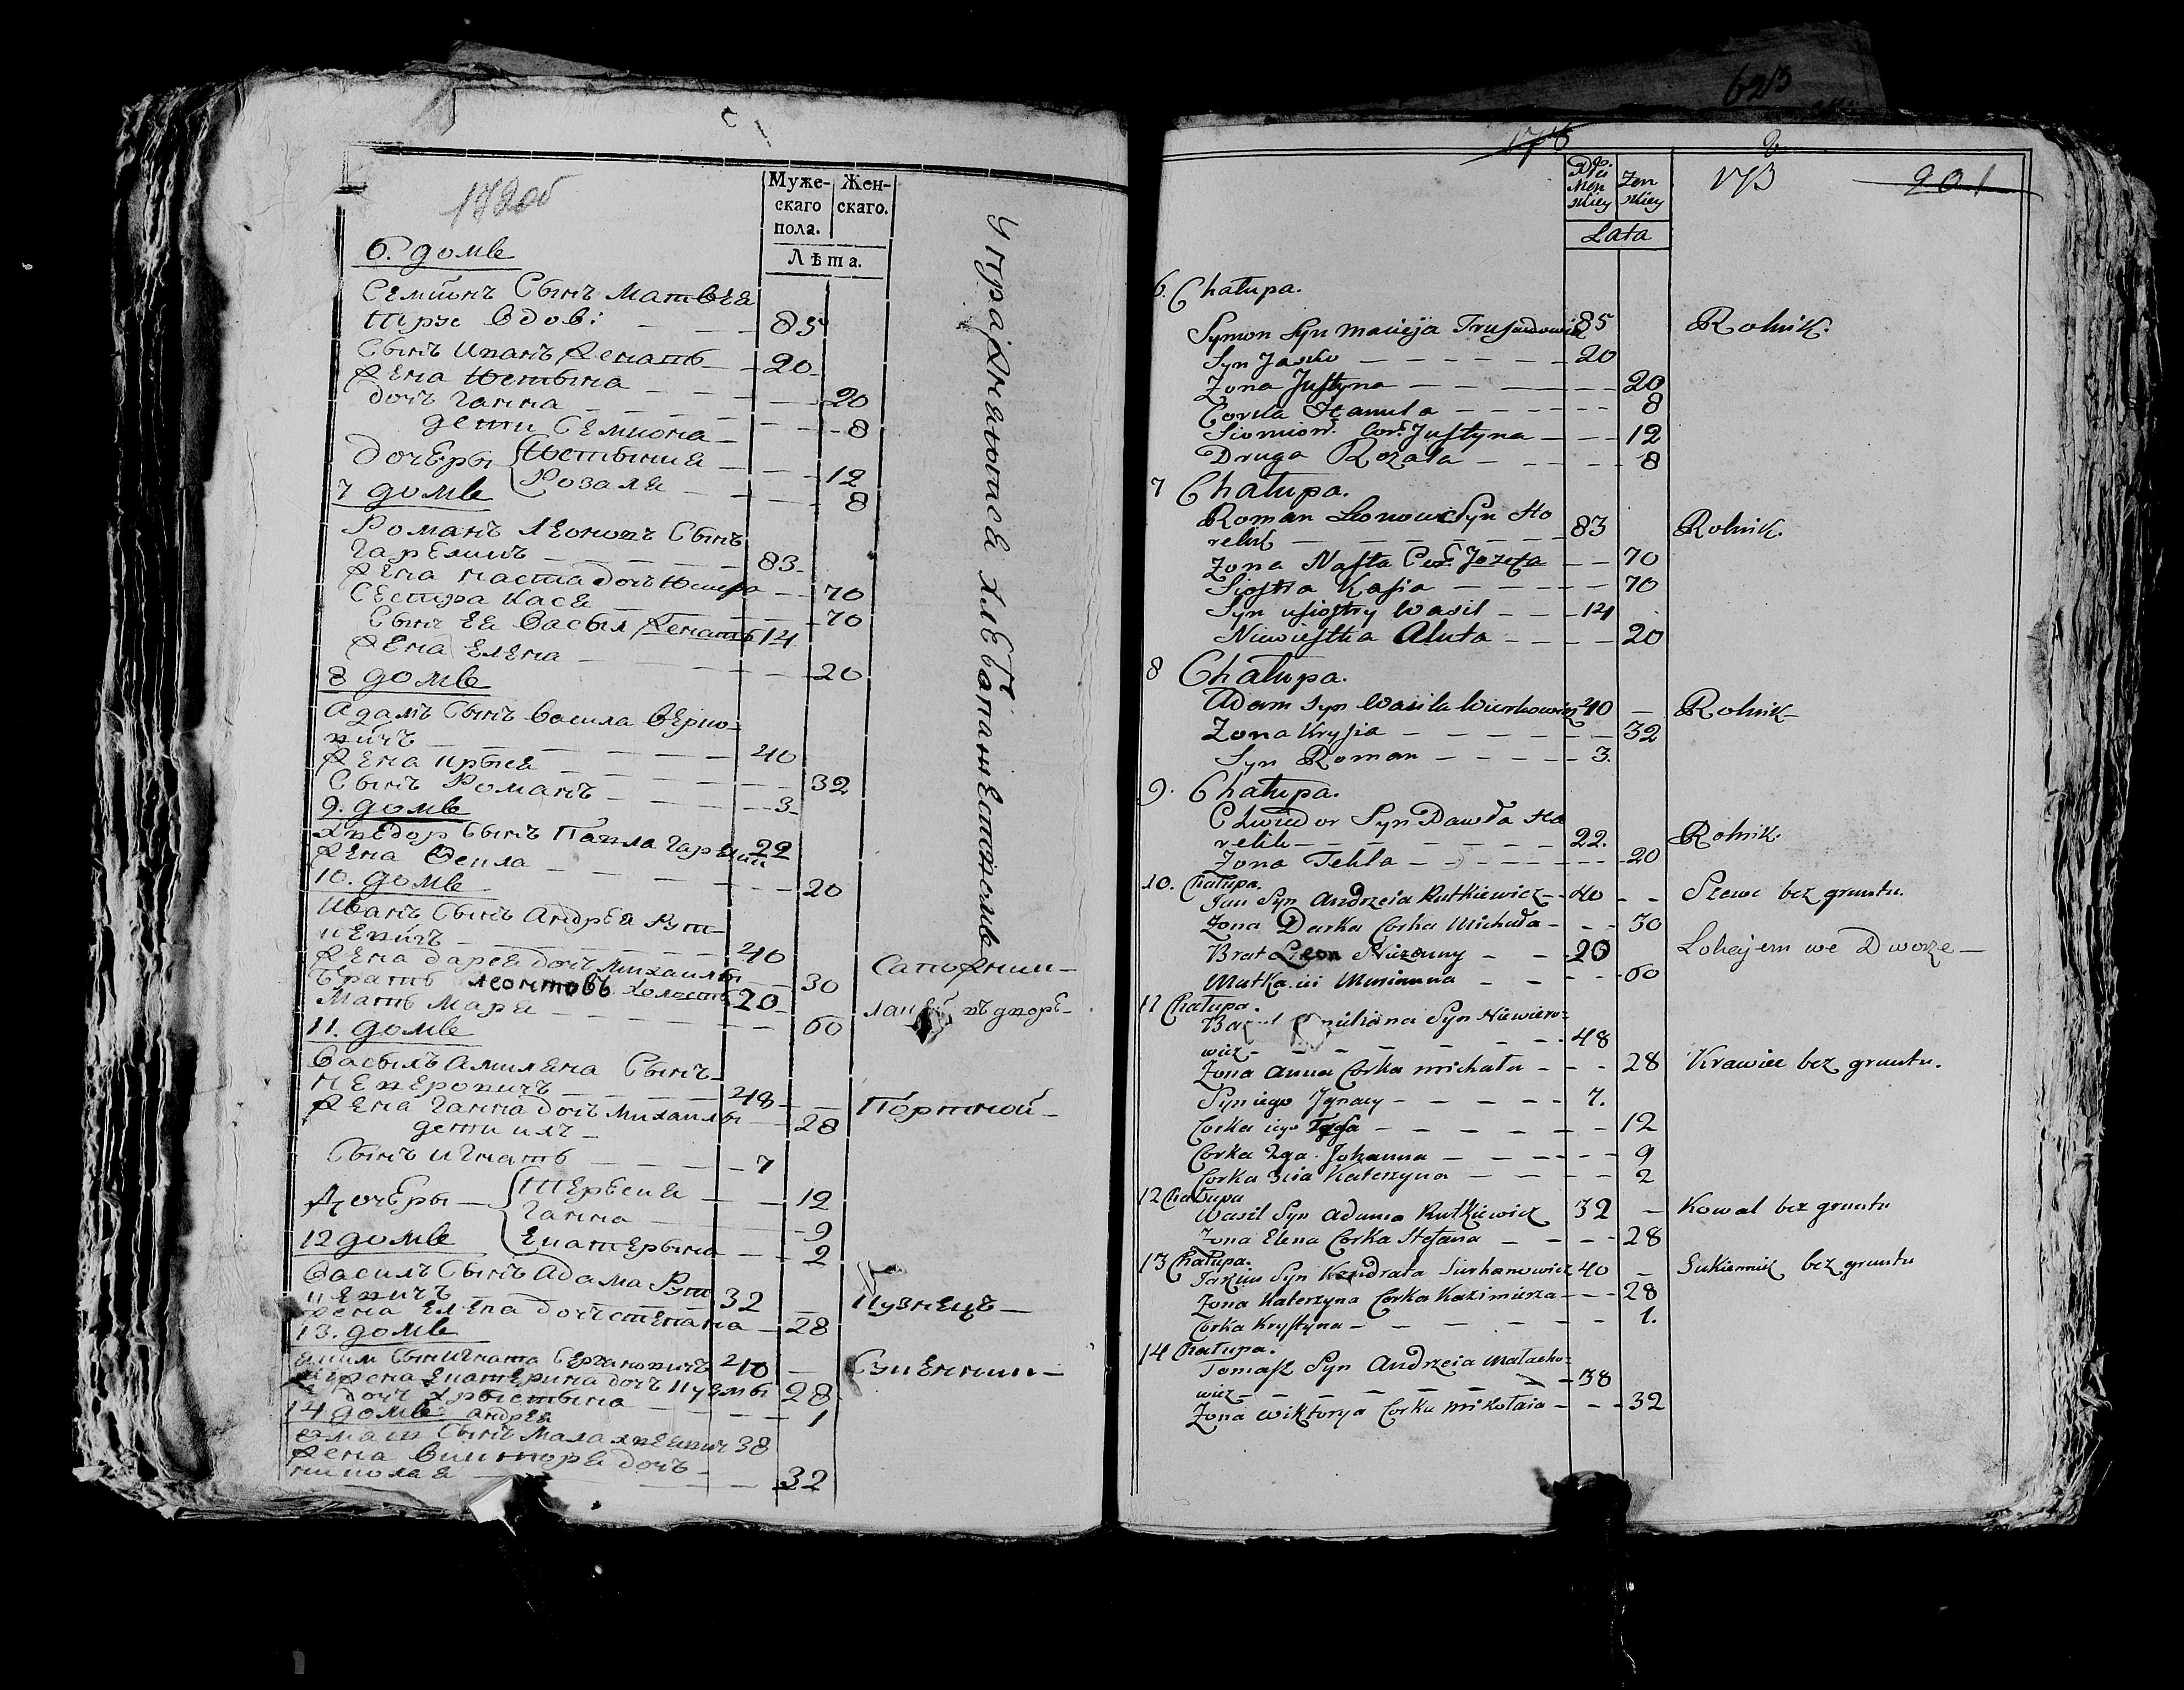 172об
Муже-
скаго
пола.
Жен-
скаго.
Лѣта.
6. домѣ
Семионъ Сынъ Матвея
вдов: 85
Сынъ Иванъ женатъ 20
жена Юстына 20
дочъ Ганна 8
дети Семиона
Дочеры Юстыния 12
Розаля 8
7 домѣ
Романъ Леоновъ Сынъ
Гарелинъ 83
жена Наста дочъ 70
Сестра Кася 70
Сынъ ея Васыл женатъ 14
жена Елена 20
8 домѣ
Адамъ Сынъ Васила Верко-
вичъ 40
жена Крыся 32
Сынъ Романъ 3
9. домѣ
Хведор Сынъ Павла 22
жена Фекла 20
10. домѣ
Иванъ Сынъ Андрея Рут-
кевичъ 40
жена Даря дочъ Михаилы 30
Братъ Леонтовъ холостъ 20
Мать Маря 60
11. домѣ
Васылъ Амиляна Сынъ
Неверовичъ 48
жена Ганна дочъ Михаилы 28
дети ихъ
Сынъ Игнатъ 7
Дочеры 12
Ганна 9
Екатерына 2
12 домѣ
Василъ Сынъ Адама Рут
кевичъ 32
жена Елена дочъ Степана 28
13. домѣ
40
жена Екатерина дочъ 28
дочъ Хрыстына 1
14 домѣ Андрея
Сынъ 38
жена Викторя дочъ
Николая 32
Упражняютса хлебопашеством
Сапожник
лакей въ дворе
Портной
Кузнецъ
Сукенник
623
175
173
201
Płci
Męs
kiey
Zen
skiey
Lata
6. Chałupa.
Symon Syn Macieja 85 Rolnik.
Syn Jasko 20
Zona Justyna 20
Corka Hanula 8
Siomion. Cor. Justyna 12
Druga Rozala 8
7 Chałupa.
Roman Leonow Syn Ho
relik 83 Rolnik.
Zona Nasta Cor. Jozefa 70
Siostra Kasia 70
Syn usiostry Wasil 14
Niewiestka Aluta 20
8 Chałupa.
Adam Syn Wasila Wierkowicz 40 Rolnik
Zona Krysia 32
Syn Roman 3.
9. Chałupa.
Chwiedor Syn Dawła Ho
relik 22. Rolnik.
Zona Tekla 20
10. Chałupa.
Jan Syn Andrzeia Rutkiewicz 40 Szewc bez gruntu.
Zona Darka Corka Michała 30
Brat Leon Niezonny 20 Lokajem we Dworze
Matka ii Marianna 60
11 Chałupa.
Syn Niewiero-
wicz 48
Zona Anna Corka Michała 28 Krawiec bez gruntu.
Syn iego Jgnacy 7.
Corka iego 12
Corka 2ga Johanna 9
Corka 3cia Katerzyna 2
12 Chałupa
Wasil Syn Adama Rutkiewicz 32 Kowal bez gruntu
Zona Elena Corka Stefana 28
13 Chałupa.
Syn Kondrata 40 Sukiennik bez gruntu
Zona Katerzyna Corka Kazimierza 28
Corka Krystyna 1.
14 Chałupa.
Tomasz Syn Andrzeia Małacho-
wicz 38
Zona Wiktorya Corka Mikołaia 32